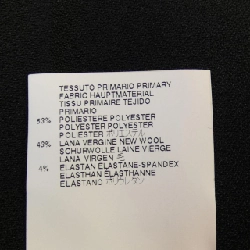 TESSUTO PRIMARIO PRIMARY
FABRIC HAUPTMATERIAL
TISSU PRIMAIRE TEJIDO
PRIMARIO
53% POLIESTERE POLYESTER
POLYESTER POLYESTER
POLIESTER ポリエステル
43% LANA VERGINE NEW WOOL
SCHURWOLLE LAINE VIERGE
LANA VIRGEN 毛
4% ELASTAN ELASTANE-SPANDEX
ELASTHAN ELASTHANNE
ELASTANO ポリウレタン